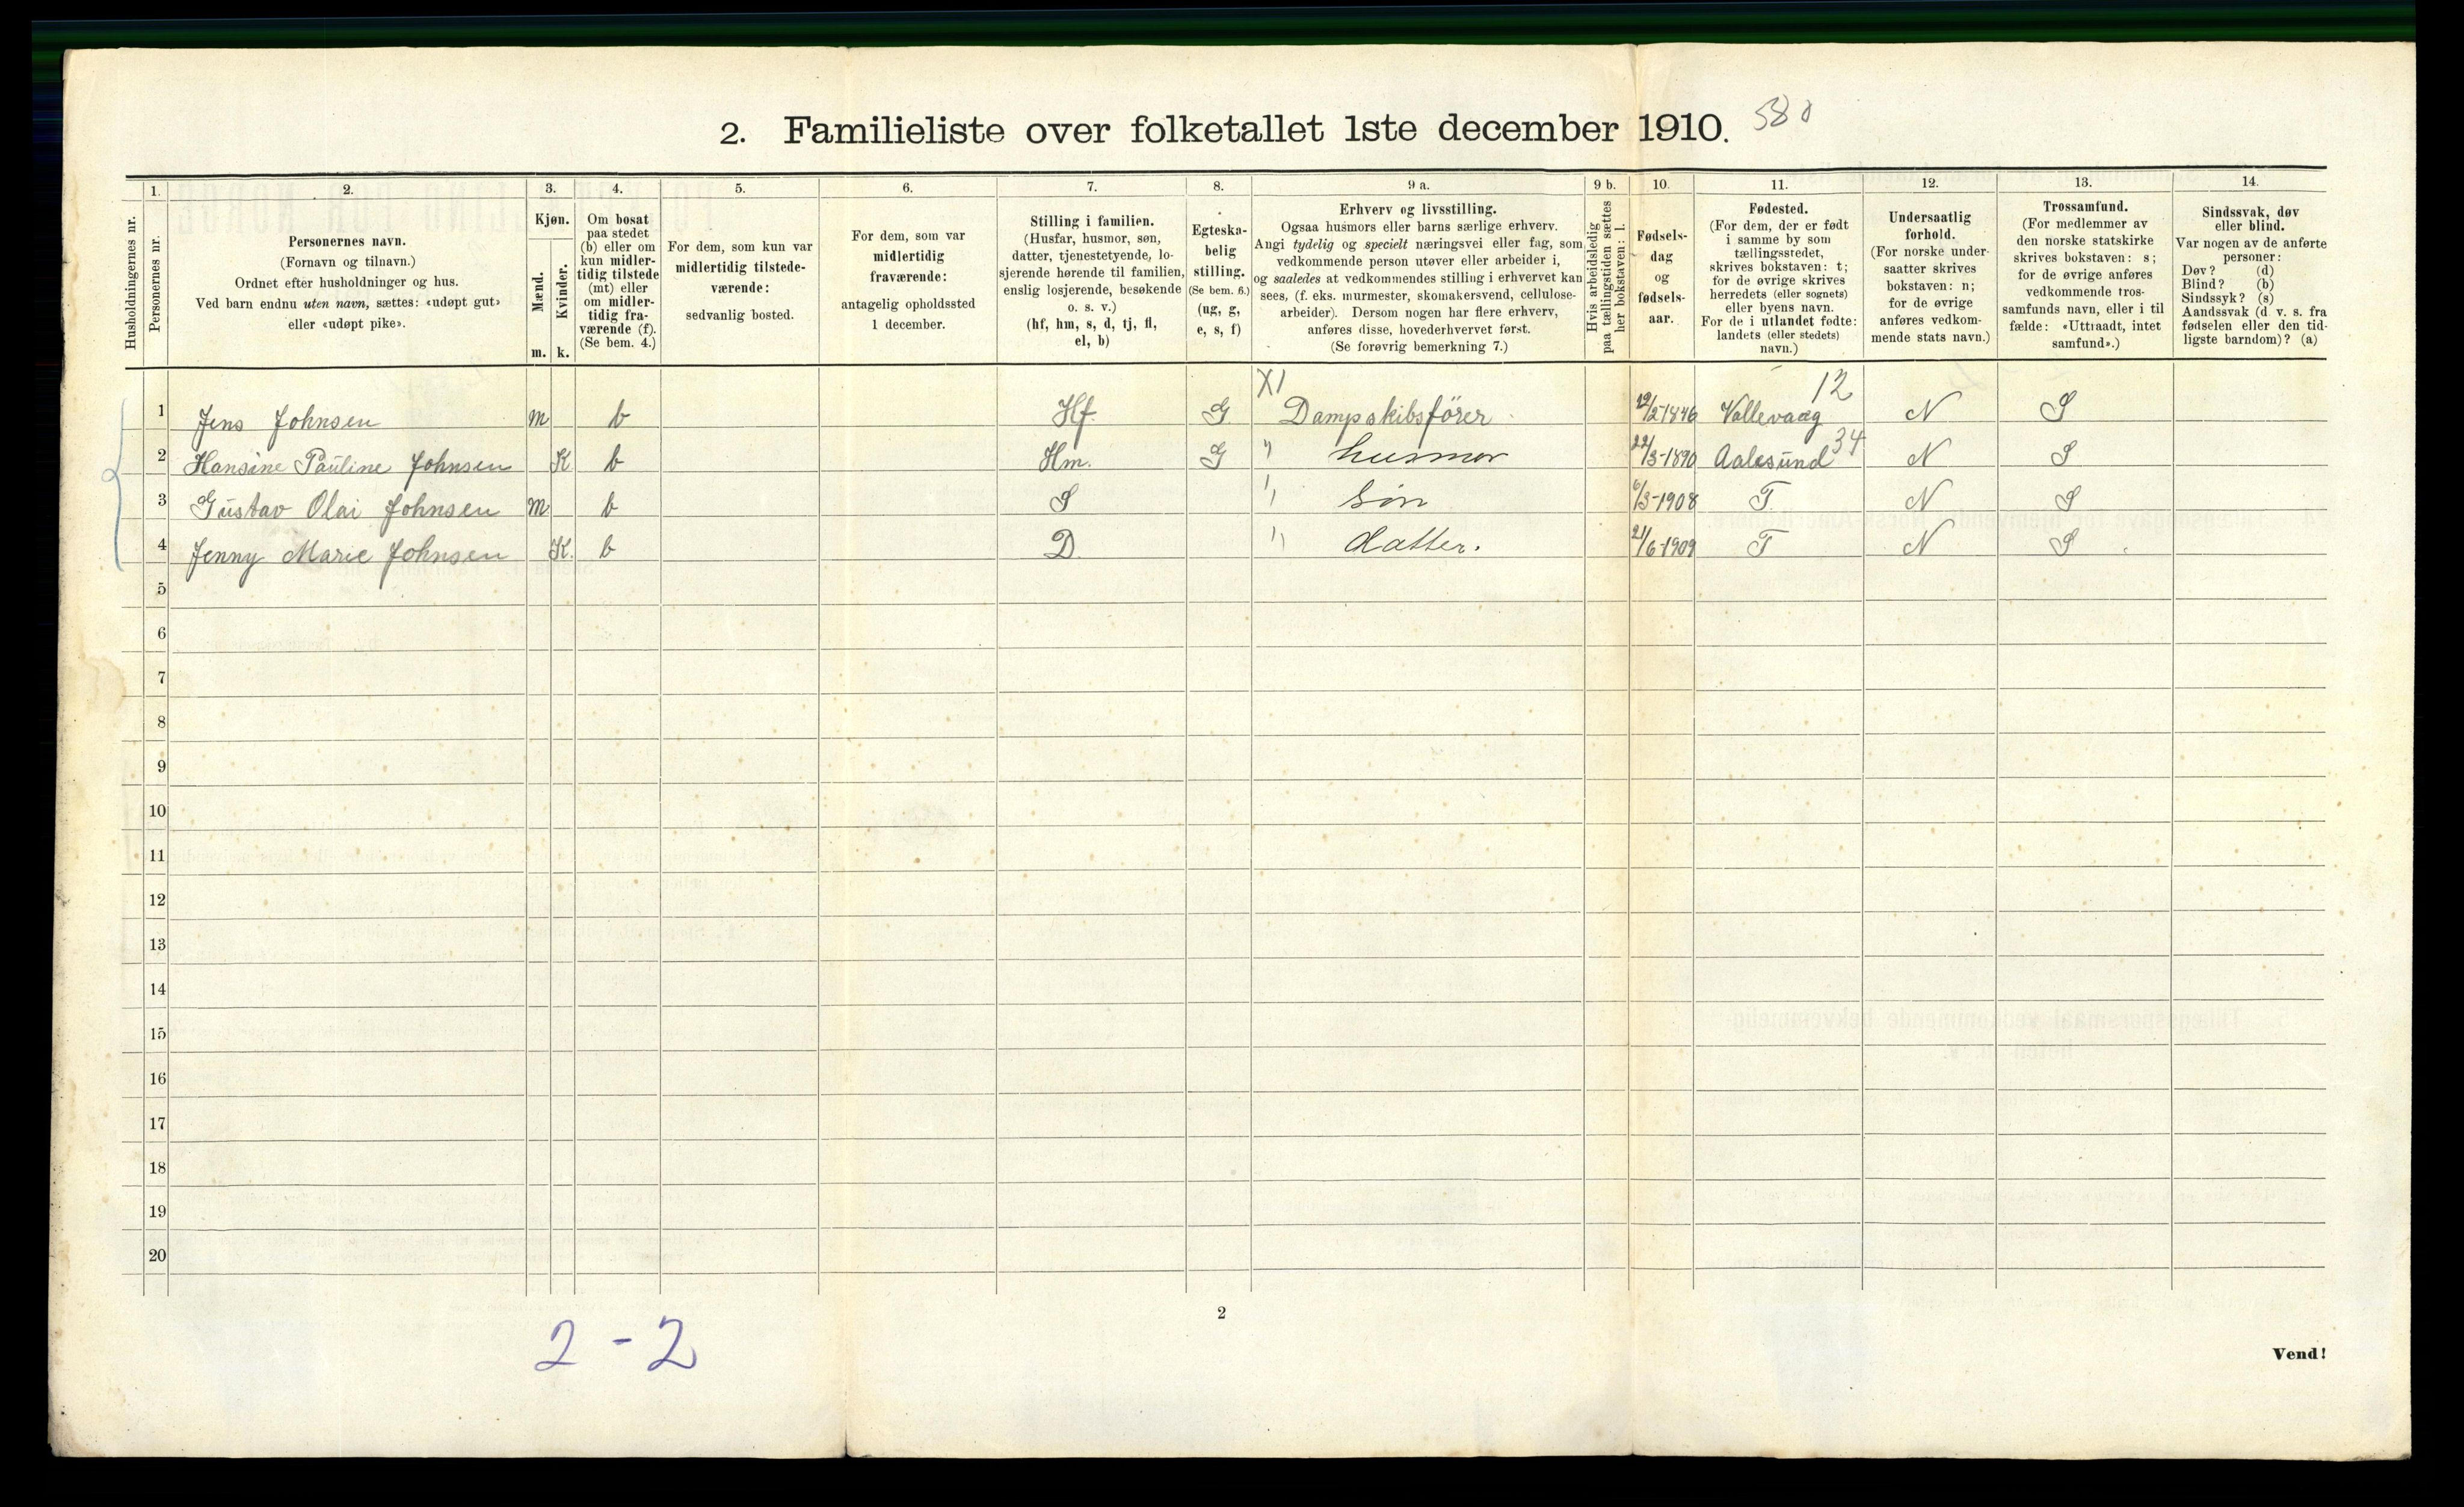 2. Familieliste over folketallet 1ste december 1910.
1.
2.
3.
4.
5.
6.
7.
8.
9 a.
9 b.
10.
11.
12.
13.
14.
Husholdningernes nr.
Personernes nr.
Personernes navn.
(Fornavn og tilnavn.)
Ordnet efter husholdninger og hus.
Ved barn endnu uten navn, sættes: «udøpt gut»
eller «udøpt pike».
Kjøn.
Mænd.
Kvinder.
m. k.
Om bosat
paa stedet
(b) eller om
kun midler-
tidig tilstede
(mt) eller
om midler-
tidig fra-
værende (f).
(Se bem. 4.)
For dem, som kun var
midlertidig tilstede-
værende:
sedvanlig bosted.
For dem, som var
midlertidig
fraværende:
antagelig opholdssted
1 december.
Stilling i familien.
(Husfar, husmor, søn,
datter, tjenestetyende, lo-
sjerende hørende til familien,
enslig losjerende, besøkende
o. s. v.)
(hf, hm, s, d, tj, fl,
el, b)
Egteska-
belig
stilling.
(Se bem. 6.)
(ug, g,
e, s, f)
Erhverv og livsstilling.
Ogsaa husmors eller barns særlige erhverv.
Angi tydelig og specielt næringsvei eller fag, som
vedkommende person utøver eller arbeider i,
og saaledes at vedkommendes stilling i erhvervet kan
sees, (f. eks. murmester, skomakersvend, cellulose-
arbeider). Dersom nogen har flere erhverv,
anføres disse, hovederhvervet først.
(Se forøvrig bemerkning 7.)
Hvis arbeidsledig
paa tællingstiden sættes
her bokstaven: l.
Fødsels-
dag
og
fødsels-
aar.
Fødested.
(For dem, der er født
i samme by som
tællingsstedet,
skrives bokstaven: t;
for de øvrige skrives
herredets (eller sognets)
eller byens navn.
For de i utlandet fødte:
landets (eller stedets)
navn.)
Undersaatlig
forhold.
(For norske under-
saatter skrives
bokstaven: n;
for de øvrige
anføres vedkom-
mende stats navn.)
Trossamfund.
(For medlemmer av
den norske statskirke
skrives bokstaven: s;
for de øvrige anføres
vedkommende tros-
samfunds navn, eller i til
fælde: «Uttraadt, intet
samfund».)
Sindssvak, døv
eller blind.
Var nogen av de anførte
personer:
Døv? (d)
Blind? (b)
Sindssyk? (s)
Aandssvak (d. v. s. fra
fødselen eller den tid-
ligste barndom)? (a)
X1 12
1 Jens Johnsen m b Hf. G Dampskibsförer 12/2-1846 Vallevaag N S
2 Hansine Pauline Johnsen K b Hm. G " husmor 22/3-1890 Aalesund 34 N S
3 Gustav Olai Johnsen m b S " Sön 6/3-1908 T. N S
4 Jenny Marie Johnsen K. b D " datter. 21/6-1909 T N S
5
6
7
8
9
10
11
12
13
14
15
16
17
18
19
20
2
2 - 2
Vend!